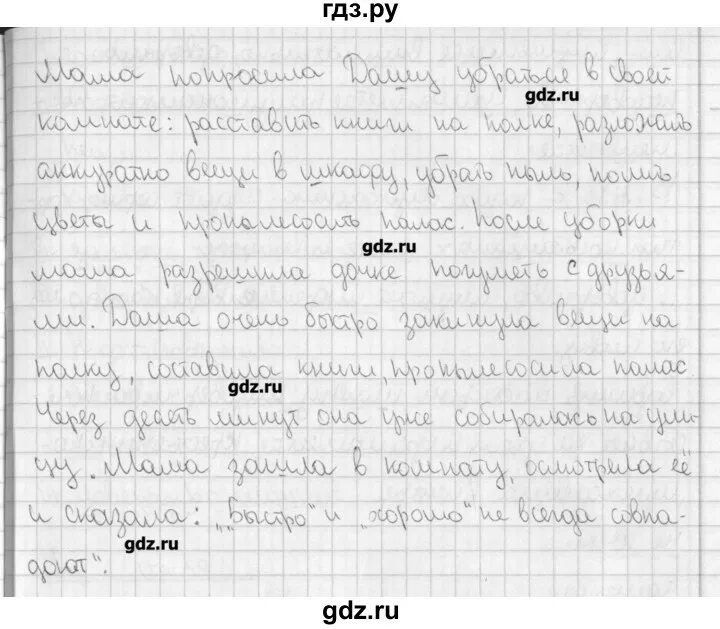 гдз.ру
Мама попросила Дашу убраться в своей
gdz.ru
комнате: расставить книги на полке, разложить
аккуратно вещи в шкафу, убрать пыль, полить
цветы и пропылесосить палас. После уборки
gdz.ru
мама разрешила дочке погулять с друзья-
ми. Даша очень быстро закинула вещи на
полку, составила книги, пропылесосила палас.
gdz.ru
Через десять минут она уже собиралась на ули-
цу. Мама зашла в комнату, осмотрела её
и сказала: „„Быстро" и „хорошо" не всегда совпа-
gdz.ru
дают".
gdz.ru